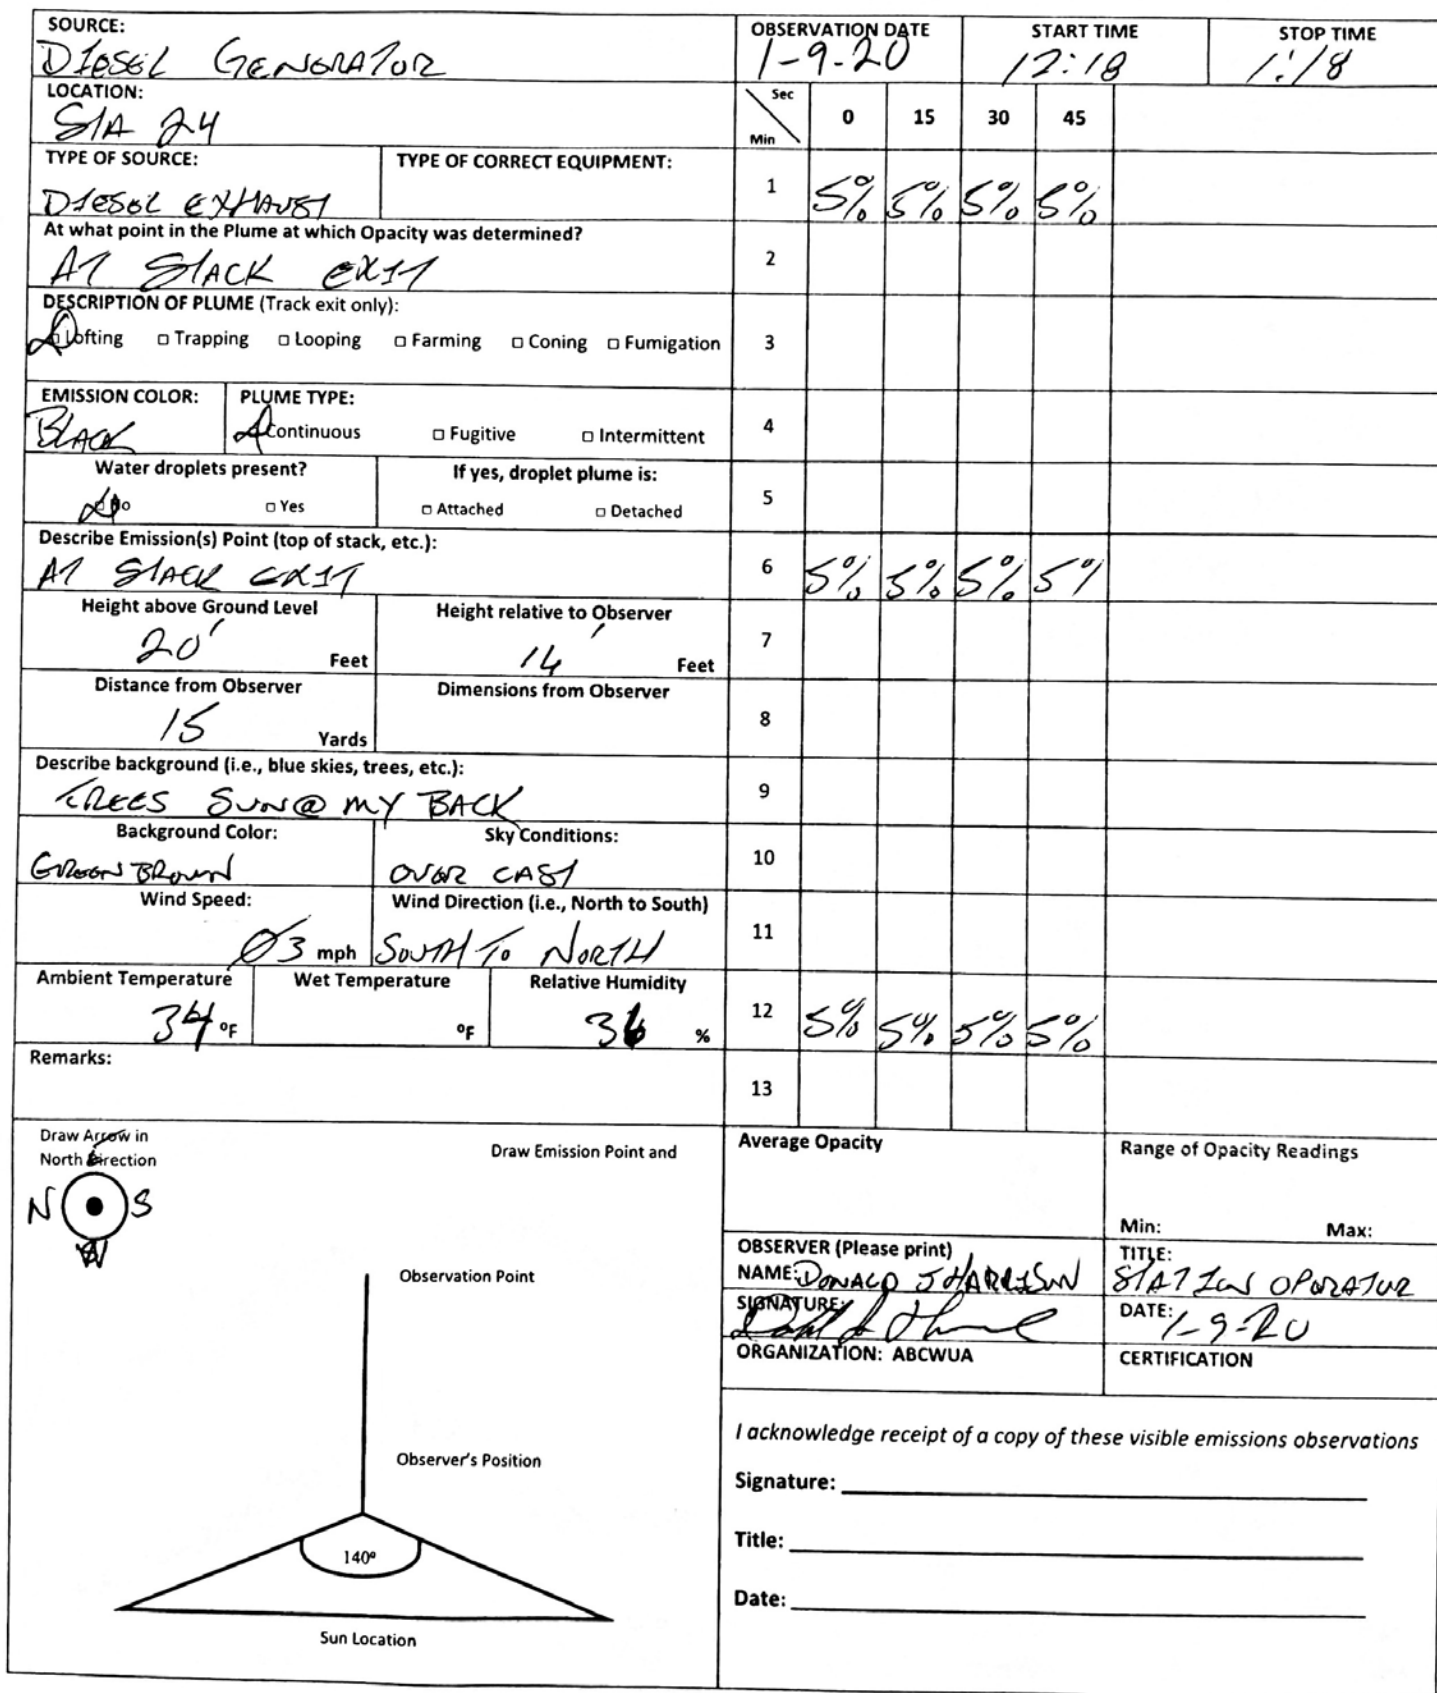 SOURCE:
DIESEL GENERATOR
OBSERVATION DATE
1-9-20
START TIME
12:18
STOP TIME
1:18
LOCATION:
STA 24
Sec
Min
0 15 30 45
TYPE OF SOURCE:
DIESEL EXHAUST
TYPE OF CORRECT EQUIPMENT:
1 5% 5% 5% 5%
At what point in the Plume at which Opacity was determined?
AT STACK EXIT
2
DESCRIPTION OF PLUME (Track exit only):
Lofting □ Trapping □ Looping □ Farming □ Coning □ Fumigation
3
EMISSION COLOR:
BLACK
PLUME TYPE:
Continuous □ Fugitive □ Intermittent
4
Water droplets present?
No □ Yes
If yes, droplet plume is:
□ Attached □ Detached
5
Describe Emission(s) Point (top of stack, etc.):
AT STACK EXIT
6 5% 5% 5% 5%
Height above Ground Level
20' Feet
Height relative to Observer
14' Feet
7
Distance from Observer
15 Yards
Dimensions from Observer
8
Describe background (i.e., blue skies, trees, etc.):
TREES SUN@ MY BACK
9
Background Color:
GREEN BROWN
Sky Conditions:
OVER CAST
10
Wind Speed:
Ø3 mph
Wind Direction (i.e., North to South)
SOUTH TO NORTH
11
Ambient Temperature
34 °F
Wet Temperature
°F
Relative Humidity
36 %
12 5% 5% 5% 5%
Remarks:
13
Draw Arrow in
North Direction
N S
W
Draw Emission Point and
Observation Point
Observer's Position
140°
Sun Location
Average Opacity
Range of Opacity Readings
Min: Max:
OBSERVER (Please print)
NAME: DONALD J HARRISON
TITLE:
STATION OPERATOR
SIGNATURE:
DATE: 1-9-20
ORGANIZATION: ABCWUA
CERTIFICATION
I acknowledge receipt of a copy of these visible emissions observations
Signature:
Title:
Date: